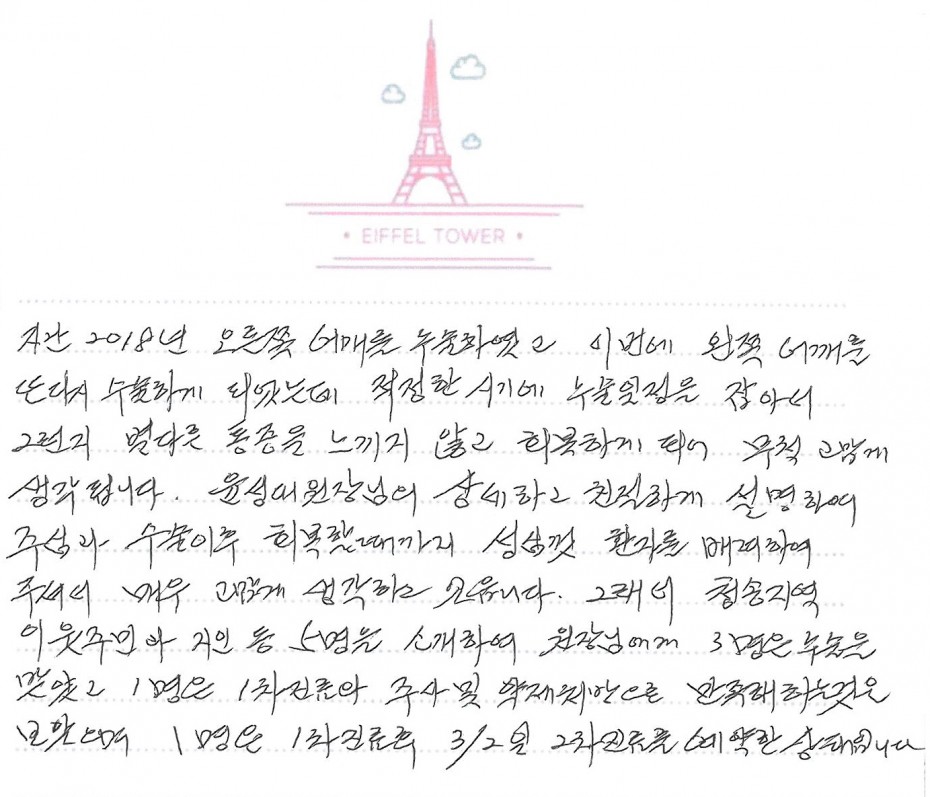 • EIFFEL TOWER •
지난 2018년 오른쪽 어깨를 수술하였고 이번에 왼쪽 어깨를
또다시 수술하게 되었는데 적정한 시기에 수술일정을 잡아서
그런지 별다른 통증을 느끼지 않고 회복하게 되어 무척 고맙게
생각됩니다. 윤성대원장님의 상세하고 친절하게 설명하여
주심과 수술이후 회복할때까지 성심껏 환자를 배려하여
주셔서 매우 고맙게 생각하고 있읍니다. 그래서 청송지역
이웃주민과 지인 등 5명을 소개하여 원장님에게 3명은 수술을
맞았고 1명은 1차진료와 주사 및 약제처방으로 만족해하는것을
보았으며 1명은 1차진료후 3/2일 2차진료를 예약한 상태입니다